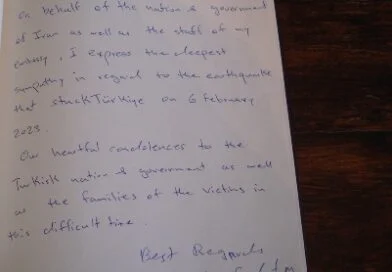 on behalf of the nation & government
of Iran as well as the staff of my
embassy, I express the deepest
sympathy in regard to the earthquake
that stuck Türkiye on 6 february
2023.
Our heartful condolences to the
Turkish nation & government as well
as the families of the victims in
this difficult time.
Best Regards